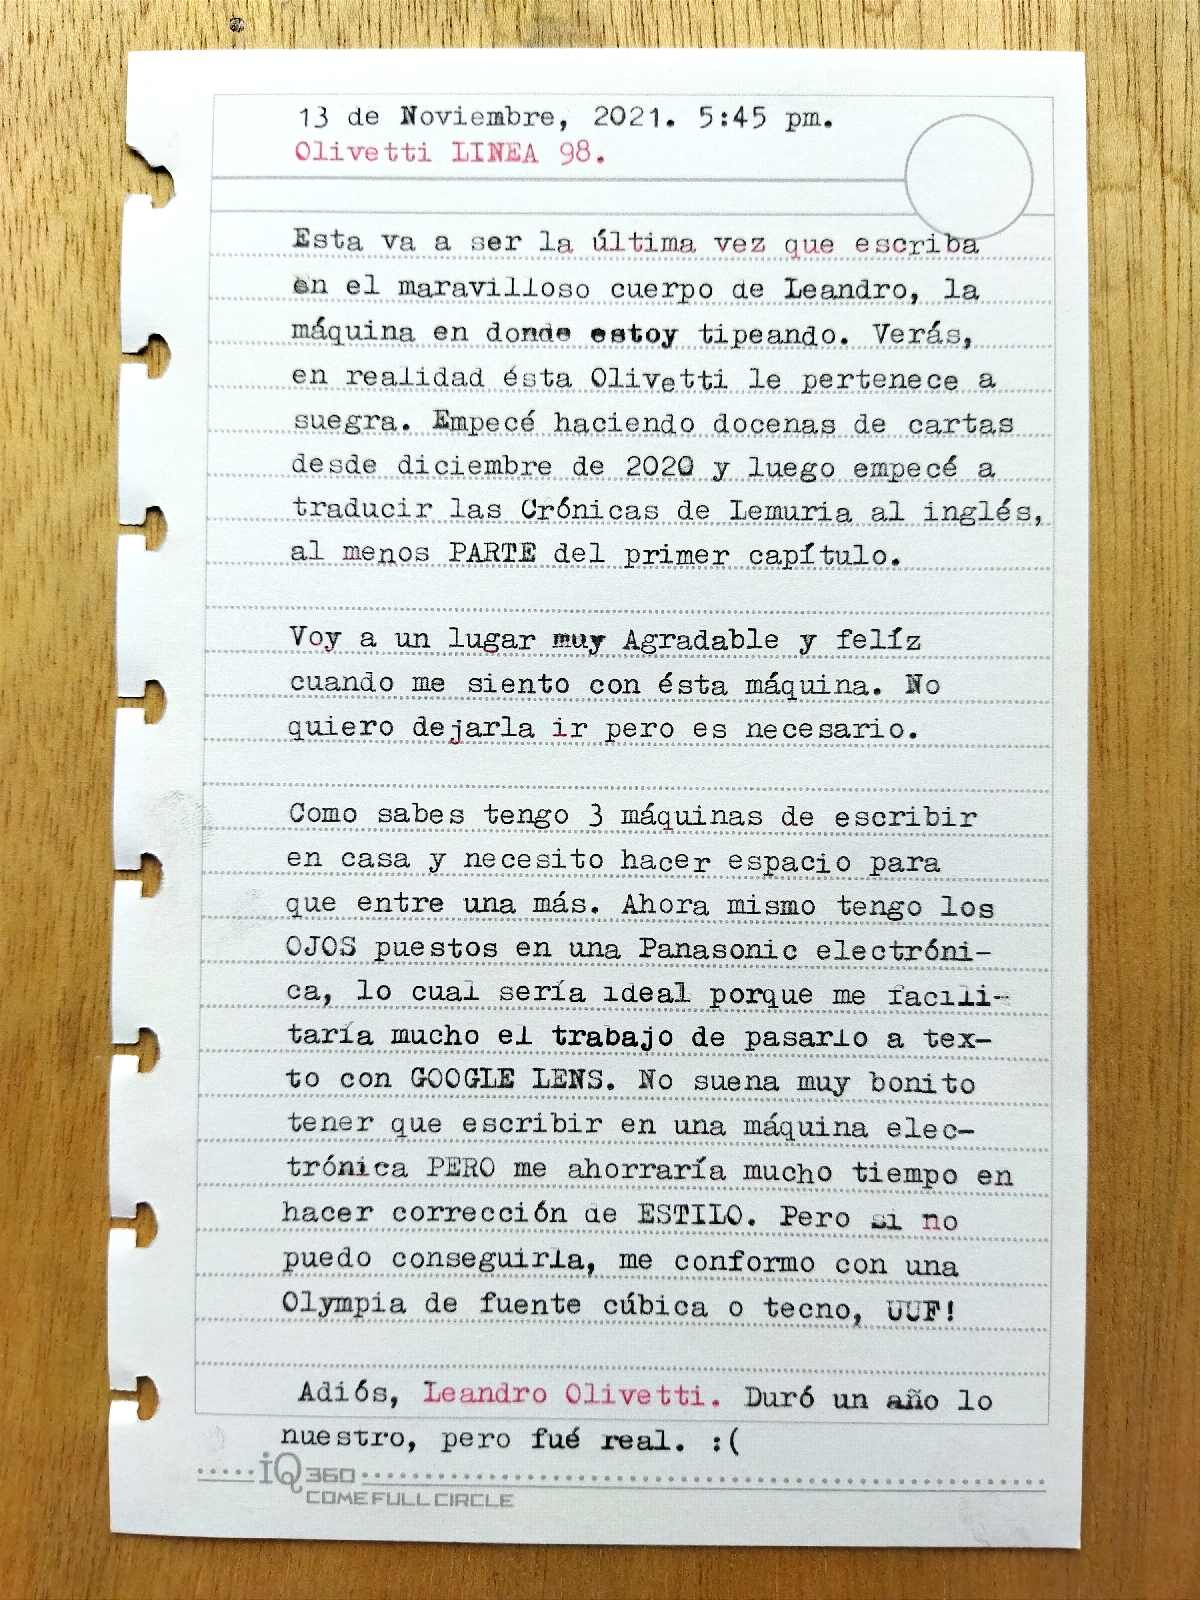 13 de Noviembre, 2021. 5:45 pm.
Olivetti LINEA 98.
Esta va a ser la última vez que escriba
en el maravilloso cuerpo de Leandro, la
máquina en donde estoy tipeando. Verás,
en realidad ésta Olivetti le pertenece a
suegra. Empecé haciendo docenas de cartas
desde diciembre de 2020 y luego empecé a
traducir las Crónicas de Lemuria al inglés,
al menos PARTE del primer capítulo.
Voy a un lugar muy Agradable y felíz
cuando me siento con ésta máquina. No
quiero dejarla ir pero es necesario.
Como sabes tengo 3 máquinas de escribir
en casa y necesito hacer espacio para
que entre una más. Ahora mismo tengo los
OJOS puestos en una Panasonic electróni-
ca, lo cual sería ideal porque me facili-
taría mucho el trabajo de pasarlo a tex-
to con GOOGLE LENS. No suena muy bonito
tener que escribir en una máquina elec-
trónica PERO me ahorraría mucho tiempo en
hacer corrección de ESTILO. Pero si no
puedo conseguirla, me conformo con una
Olympia de fuente cúbica o tecno, UUF!
Adiós, Leandro Olivetti. Duró un año lo
nuestro, pero fué real. :(
iQ 360
COME FULL CIRCLE